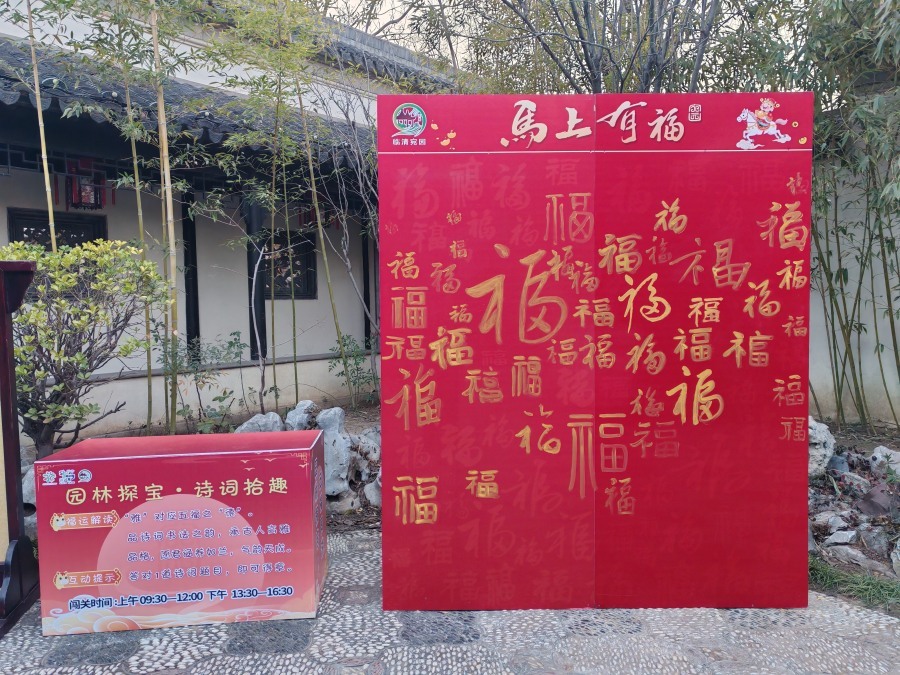 临清宛园
馬上有福
福 福 福 福 福 福
福 福 福 福 福 福
福 福 福 福 福 福
福 福 福 福 福 福
福 福 福 福 福 福
福 福 福 福 福 福
园林探宝·诗词拾趣
福运解读 “雅”对应五福之“德”。
品诗词书法之韵，承古人高雅
品格，愿君涵养如兰，气韵天成。
互动提示 答对1道诗词题目，即可
闯关时间：上午 09:30—12:00 下午 13:30—16:30